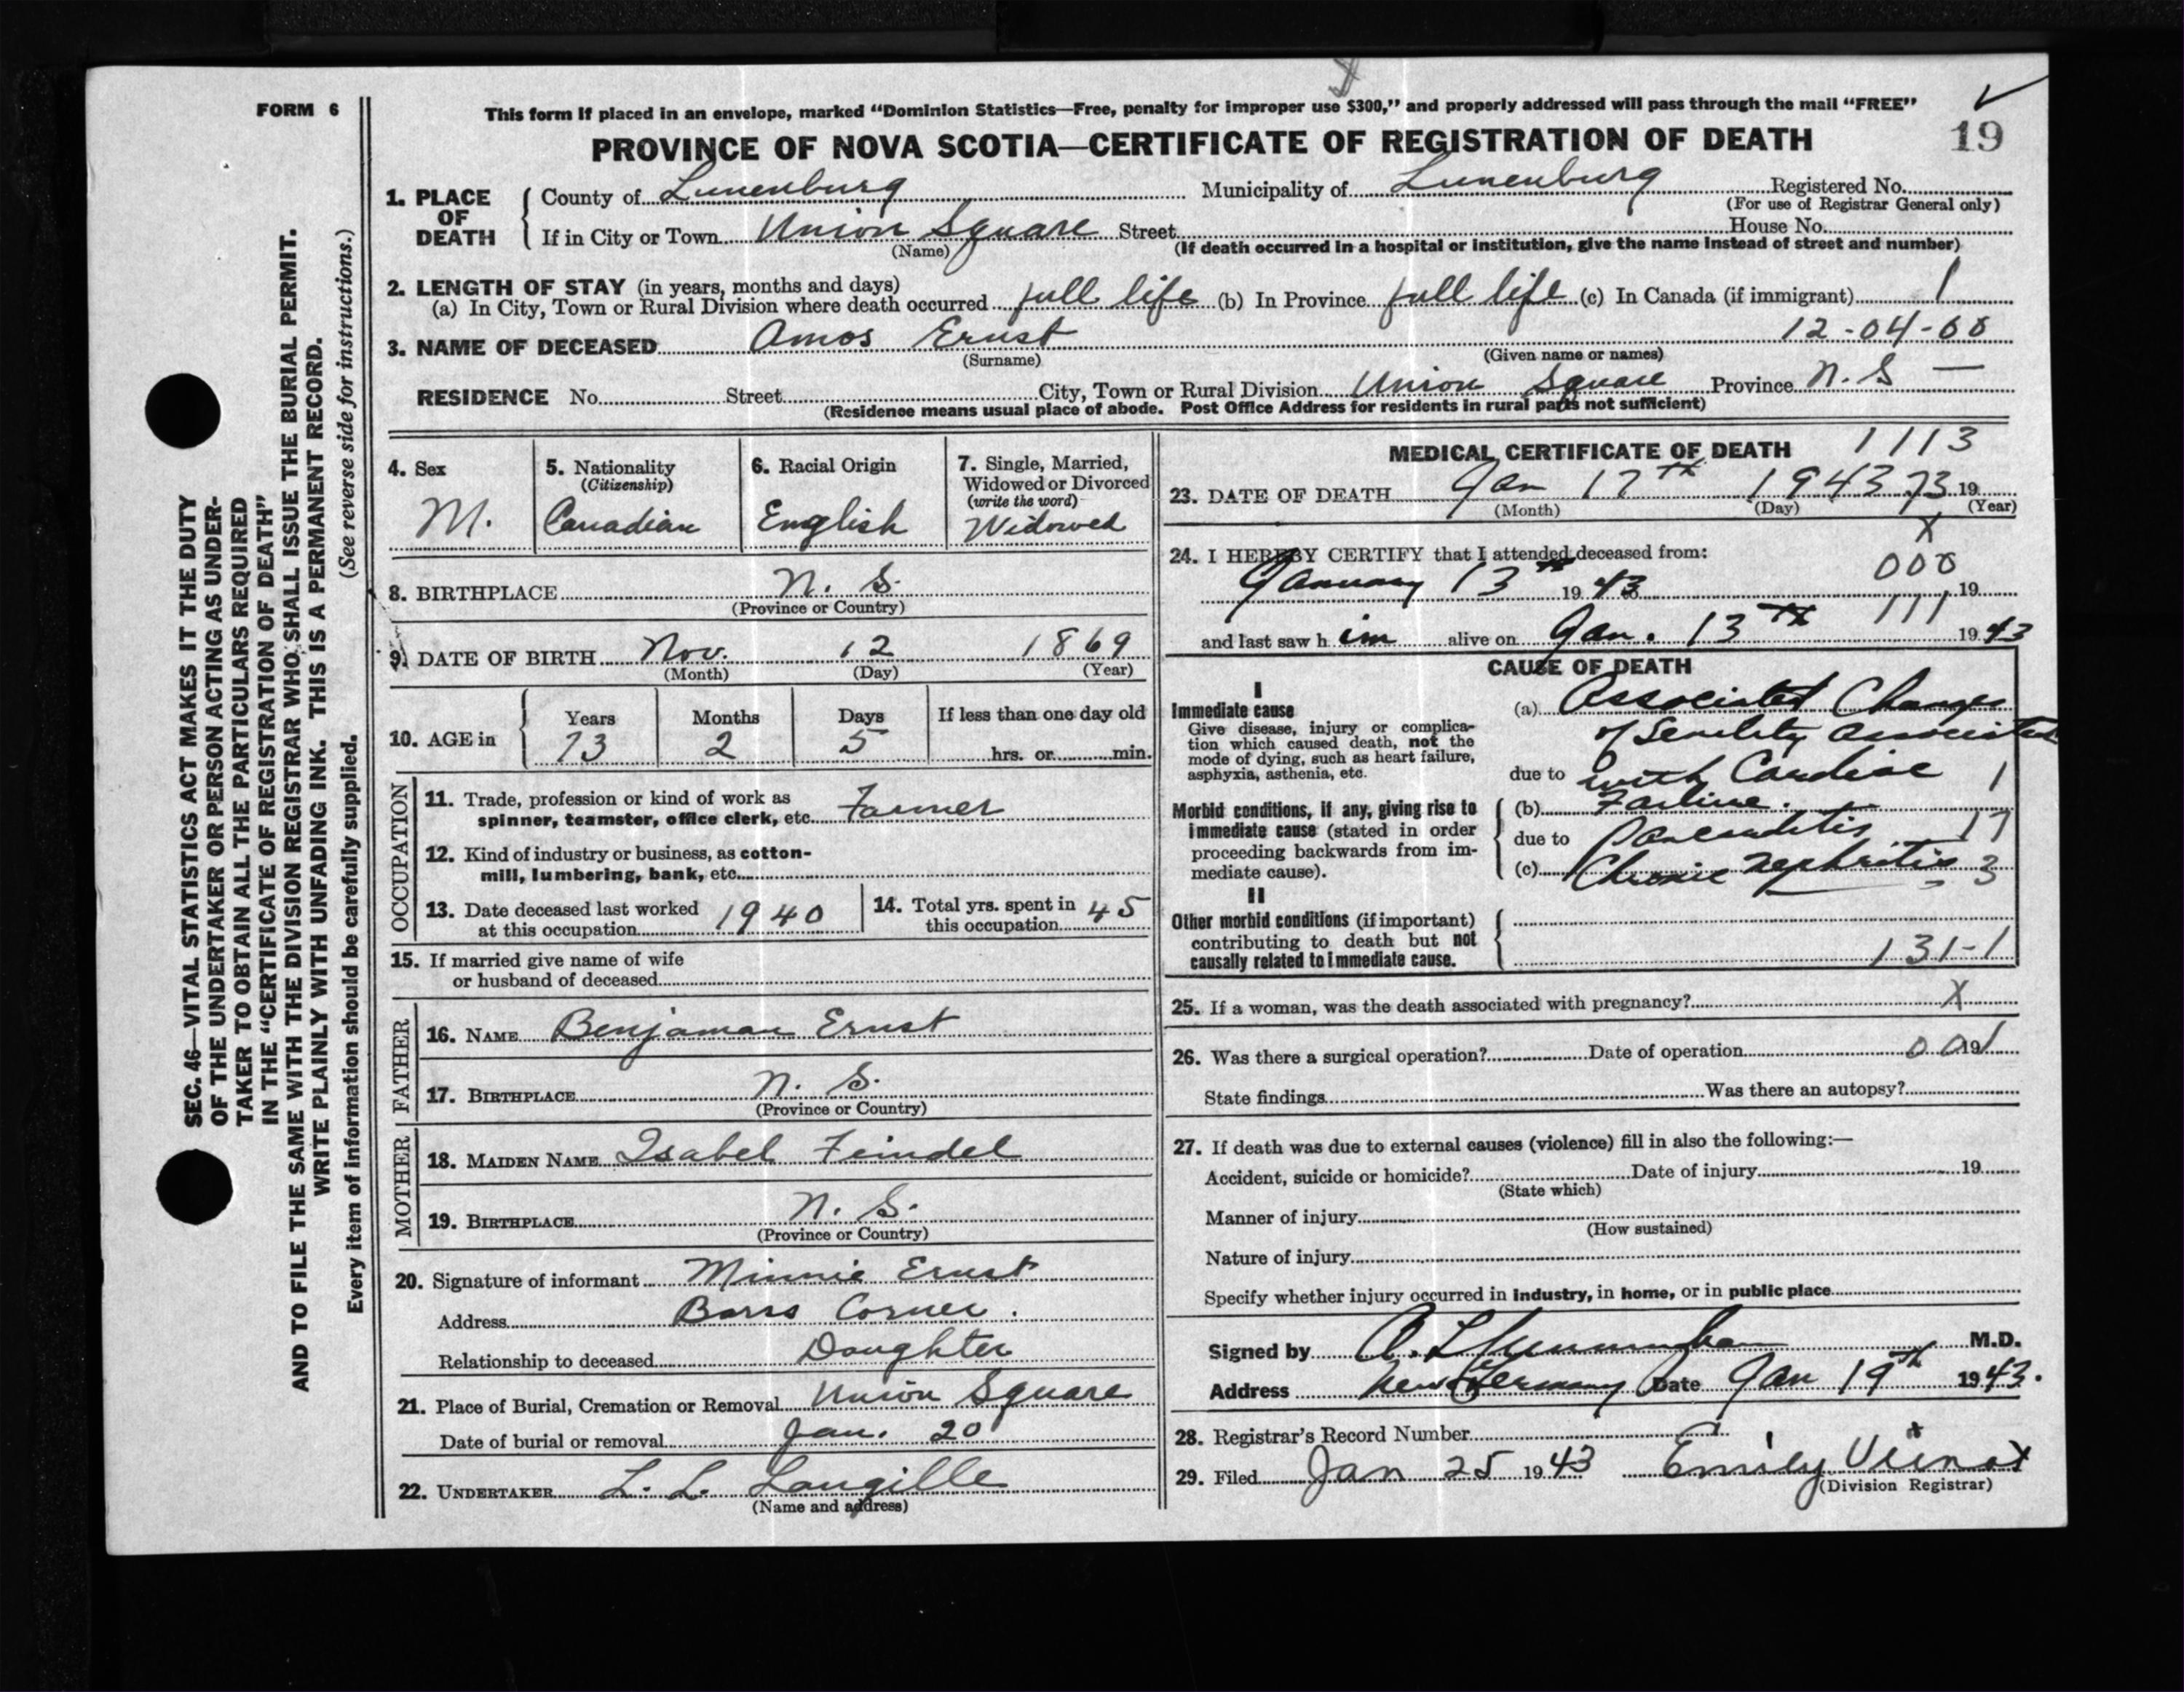 FORM 6
This form if placed in an envelope, marked “Dominion Statistics—Free, penalty for improper use $300,” and properly addressed will pass through the mail “FREE”
PROVINCE OF NOVA SCOTIA—CERTIFICATE OF REGISTRATION OF DEATH 19
1. PLACE OF DEATH
County of Lunenburg Municipality of Lunenburg Registered No.
(For use of Registrar General only)
If in City or Town Union Square Street House No.
(Name) (If death occurred in a hospital or institution, give the name instead of street and number)
2. LENGTH OF STAY (in years, months and days)
(a) In City, Town or Rural Division where death occurred full life (b) In Province full life (c) In Canada (if immigrant) 1
3. NAME OF DECEASED Amos Ernst 12-04-00
(Surname) (Given name or names)
RESIDENCE No. Street City, Town or Rural Division Union Square Province N.S —
(Residence means usual place of abode. Post Office Address for residents in rural parts not sufficient)
4. Sex M.
5. Nationality (Citizenship) Canadian
6. Racial Origin English
7. Single, Married, Widowed or Divorced (write the word) Widowed
8. BIRTHPLACE N. S.
(Province or Country)
9. DATE OF BIRTH Nov. 12 1869
(Month) (Day) (Year)
10. AGE in Years Months Days If less than one day old
73 2 5 hrs. or min.
OCCUPATION
11. Trade, profession or kind of work as
spinner, teamster, office clerk, etc. Farmer
12. Kind of industry or business, as cotton-
mill, lumbering, bank, etc.
13. Date deceased last worked
at this occupation 1940
14. Total yrs. spent in
this occupation 45
15. If married give name of wife
or husband of deceased
FATHER
16. NAME Benjaman Ernst
17. BIRTHPLACE N. S.
(Province or Country)
MOTHER
18. MAIDEN NAME Isabel Feindel
19. BIRTHPLACE N. S.
(Province or Country)
20. Signature of informant Minnie Ernst
Address Barss Corner.
Relationship to deceased Daughter
21. Place of Burial, Cremation or Removal Union Square
Date of burial or removal Jan. 20
22. UNDERTAKER L. L. Langille
(Name and address)
MEDICAL CERTIFICATE OF DEATH 1113
23. DATE OF DEATH Jan 17th 1943 73 19
(Month) (Day) (Year)
X
24. I HEREBY CERTIFY that I attended deceased from: 000
January 13th 19 43 to 19
111
and last saw h im alive on Jan. 13th 19 43
CAUSE OF DEATH
I
Immediate cause
Give disease, injury or complica-
tion which caused death, not the
mode of dying, such as heart failure,
asphyxia, asthenia, etc.
(a) Associated Changes
of Senility associated
due to with Cardiac 1
Morbid conditions, if any, giving rise to
immediate cause (stated in order
proceeding backwards from im-
mediate cause).
(b) Failure.
due to 17
(c) Chronic Nephritis 3
II
Other morbid conditions (if important)
contributing to death but not
causally related to immediate cause.
131-1
25. If a woman, was the death associated with pregnancy? X
26. Was there a surgical operation? Date of operation 001 19
State findings Was there an autopsy?
27. If death was due to external causes (violence) fill in also the following:—
Accident, suicide or homicide? Date of injury 19
(State which)
Manner of injury
(How sustained)
Nature of injury
Specify whether injury occurred in industry, in home, or in public place
Signed by M.D.
Address New Germany Date Jan 19th 19 43.
28. Registrar's Record Number
29. Filed Jan 25 19 43 Emily Veinot
(Division Registrar)
SEC. 46—VITAL STATISTICS ACT MAKES IT THE DUTY
OF THE UNDERTAKER OR PERSON ACTING AS UNDER-
TAKER TO OBTAIN ALL THE PARTICULARS REQUIRED
IN THE “CERTIFICATE OF REGISTRATION OF DEATH”
AND TO FILE THE SAME WITH THE DIVISION REGISTRAR WHO SHALL ISSUE THE BURIAL PERMIT.
WRITE PLAINLY WITH UNFADING INK. THIS IS A PERMANENT RECORD.
(See reverse side for instructions.)
Every item of information should be carefully supplied.